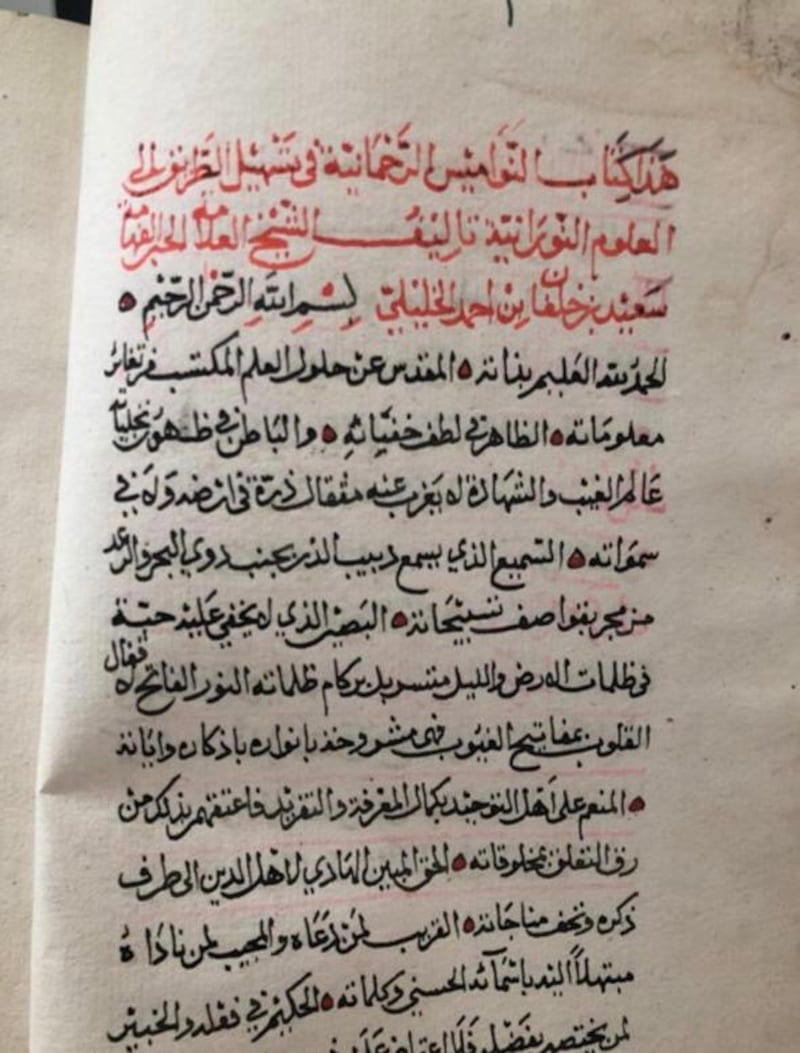 هذا كتاب النواميس الرحمانية في تسهيل الطريق الى
العلوم النورانية تاليف الشيخ العلامة الحبر الفهامة
سعيد بن خلفان بن احمد الخليلي بسم الله الرحمن الرحيم
الحمد لله العليم بذاته المقدس عن حلول العلم المكتسب في تغاير
معلوماته الظاهر في لطف خفياته والباطن في ظهور تجلياته
عالم الغيب والشهادة لا يعزب عنه مثقال ذرة في ارضه ولا في
سمواته السميع الذي يسمع دبيب الذر بجنب دوي البحر والرعد
من مجر بقواصف تسبيحاته البصير الذي لا يخفى عليه حبة
في ظلمات الارض والليل متسربل بركام ظلماته النور الفاتح لاقفال
القلوب بمفاتيح الغيوب فهي مشروحة بانواره باذكاره واياته
المنعم على اهل التوحيد بكمال المعرفة والتفريد فاعتقهم بذلك من
رق التعلق بمخلوقاته الحق المبين الهادي لاهل الدين الى طرف
ذكره وتحف مناجاته القريب لمن دعاه والمجيب لمن ناداه
مبتهلاً اليه باسمآئه الحسنى وكلماته الحكيم في فعله والخبير
لمن يختصه بفضله فلا اعتراض عليه